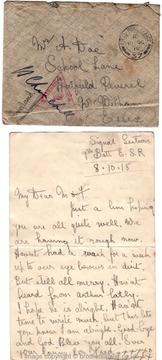 Mr A. Dae
School Lane
Hatfield Peverel
Nr Witham
Essex
Signal Section
9th Batt E.S.R
8.10.15
My Dear M & F
Just a line hoping
you are all quite well. We
are having it rough now.
Havnt had a wash for a week
up to our eye brows in dirt.
But still all merry. Havnt
heard from Arthur lately.
I hope he is alright. Havnt
time to write much but this lets
you know I am alright. Good bye
and God Bless you all. Ever
your loving Son